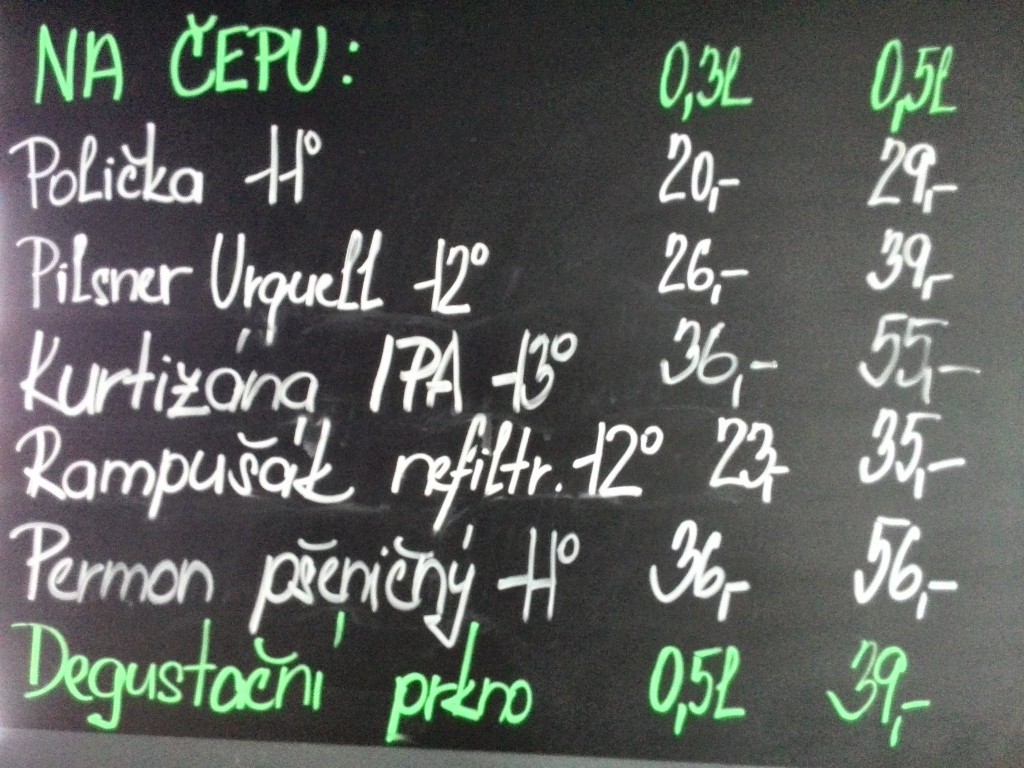 NA ČEPU: 0,3l 0,5l
Polička 11° 20,- 29,-
Pilsner Urquell 12° 26,- 39,-
Kurtizána IPA 13° 36,- 55,-
Rampušák nefiltr. 12° 23,- 35,-
Permon pšeničný 11° 36,- 56,-
Degustační prkno 0,5l 39,-